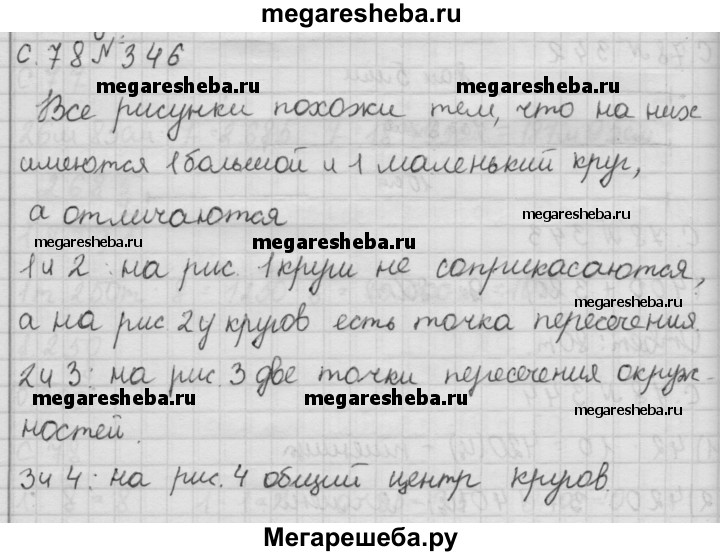 megaresheba.ru
с. 78 № 346
megaresheba.ru megaresheba.ru
Все рисунки похожи тем, что на них
имеются 1 большой и 1 маленький круг,
а отличаются
megaresheba.ru megaresheba.ru megaresheba.ru
1 и 2: на рис. 1 круги не соприкасаются,
megaresheba.ru
а на рис 2 у кругов есть точка пересечения.
2 и 3: на рис. 3 две точки пересечения окруж-
megaresheba.ru megaresheba.ru megaresheba.ru
ностей.
3 и 4: на рис. 4 общий центр кругов.
Мегарешеба.ру